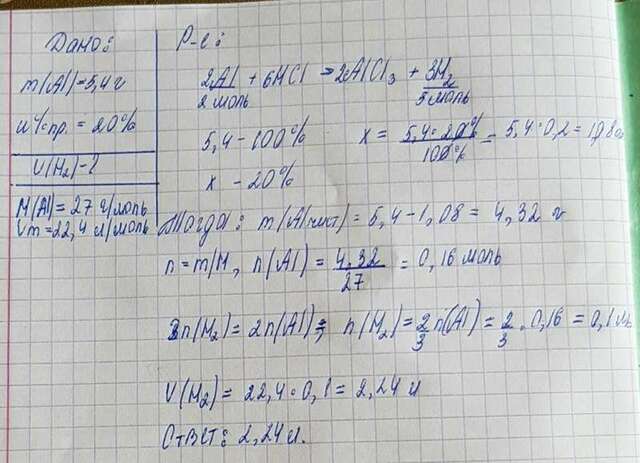 Дано:
m(Al)=5,4 г
w%пр. = 20%
V(H₂)-?
M(Al)= 27 г/моль
Vm=22,4 л/моль
Р-е:
2Al + 6HCl → 2AlCl₃ + 3H₂
2 моль 3 моль
5,4 - 100% x = 5,4·20%/100% = 5,4·0,2 = 1,08
x - 20%
Тогда: m(Al чист) = 5,4-1,08 = 4,32 г
n=m/M, n(Al) = 4,32/27 = 0,16 моль
3n(H₂)= 2n(Al) ⇒ n(H₂)= 2/3 n(Al) = 2/3 · 0,16 = 0,1
V(H₂)= 22,4·0,1 = 2,24 л
Ответ: 2,24 л.